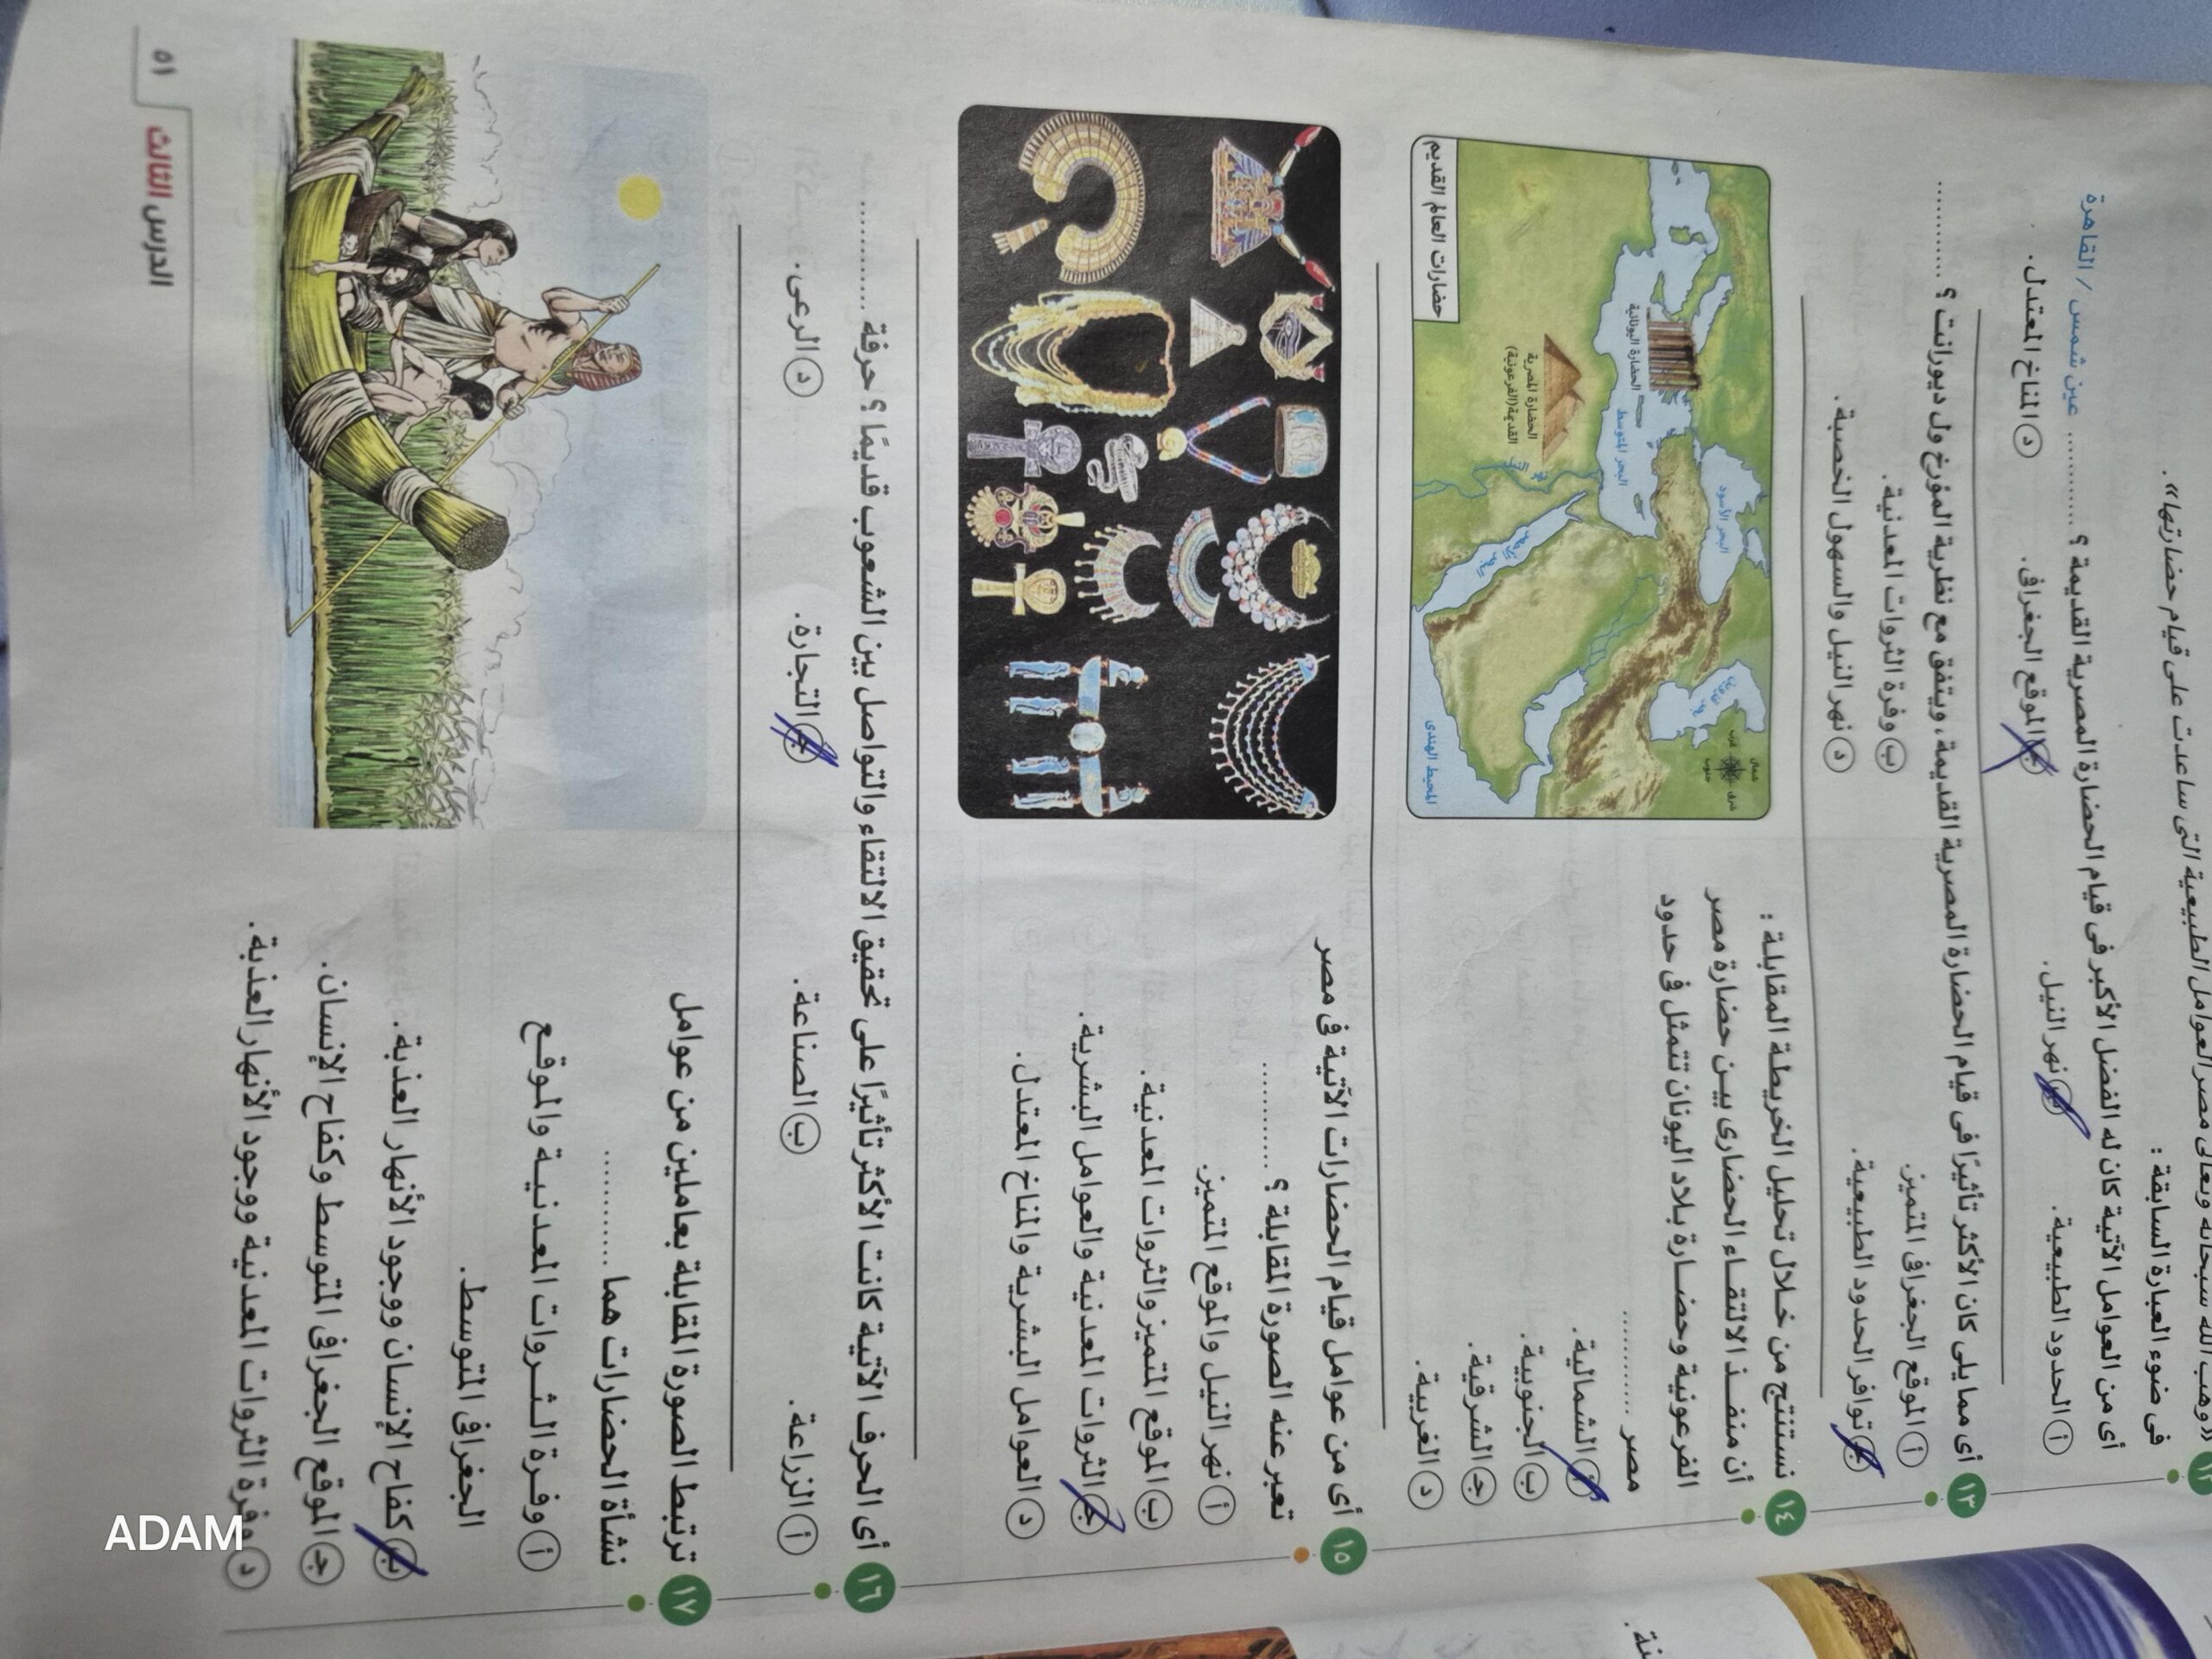 ١٢ «وهب الله سبحانه وتعالى مصر العوامل الطبيعية التى ساعدت على قيام حضارتها».
فى ضوء العبارة السابقة :
أى من العوامل الآتية كان له الفضل الأكبر فى قيام الحضارة المصرية القديمة ؟ ............ عين شمس / القاهرة
أ الحدود الطبيعية. ب نهر النيل. ج الموقع الجغرافى. د المناخ المعتدل.
١٣ أى مما يلى كان الأكثر تأثيرًا فى قيام الحضارة المصرية القديمة، ويتفق مع نظرية المؤرخ ول ديورانت ؟ ............
أ الموقع الجغرافى المتميز. ب وفرة الثروات المعدنية.
ج توافر الحدود الطبيعية. د نهر النيل والسهول الخصبة.
١٤ نستنتج من خلال تحليل الخريطة المقابلة :
أن منفذ الالتقاء الحضارى بين حضارة مصر
الفرعونية وحضارة بلاد اليونان تتمثل فى حدود
مصر ............
أ الشمالية.
ب الجنوبية.
ج الشرقية.
د الغربية.
شمال
غرب
شرق
جنوب
البحر الأسود
بحر قزوين
الحضارة اليونانية
البحر المتوسط
الحضارة المصرية
القديمة (الفرعونية)
نهر النيل
البحر الأحمر
المحيط الهندى
حضارات العالم القديم
١٥ أى من عوامل قيام الحضارات الآتية فى مصر
تعبر عنه الصورة المقابلة ؟ ............
أ نهر النيل والموقع المتميز.
ب الموقع المتميز والثروات المعدنية.
ج الثروات المعدنية والعوامل البشرية.
د العوامل البشرية والمناخ المعتدل.
١٦ أى الحرف الآتية كانت الأكثر تأثيرًا على تحقيق الالتقاء والتواصل بين الشعوب قديمًا ؟ حرفة ............
أ الزراعة. ب الصناعة. ج التجارة. د الرعى.
١٧ ترتبط الصورة المقابلة بعاملين من عوامل
نشأة الحضارات هما ............
أ وفرة الثروات المعدنية والموقع
الجغرافى المتوسط.
ب كفاح الإنسان ووجود الأنهار العذبة.
ج الموقع الجغرافى المتوسط وكفاح الإنسان.
د وفرة الثروات المعدنية ووجود الأنهار العذبة.
٥١ الدرس الثالث
ADAM